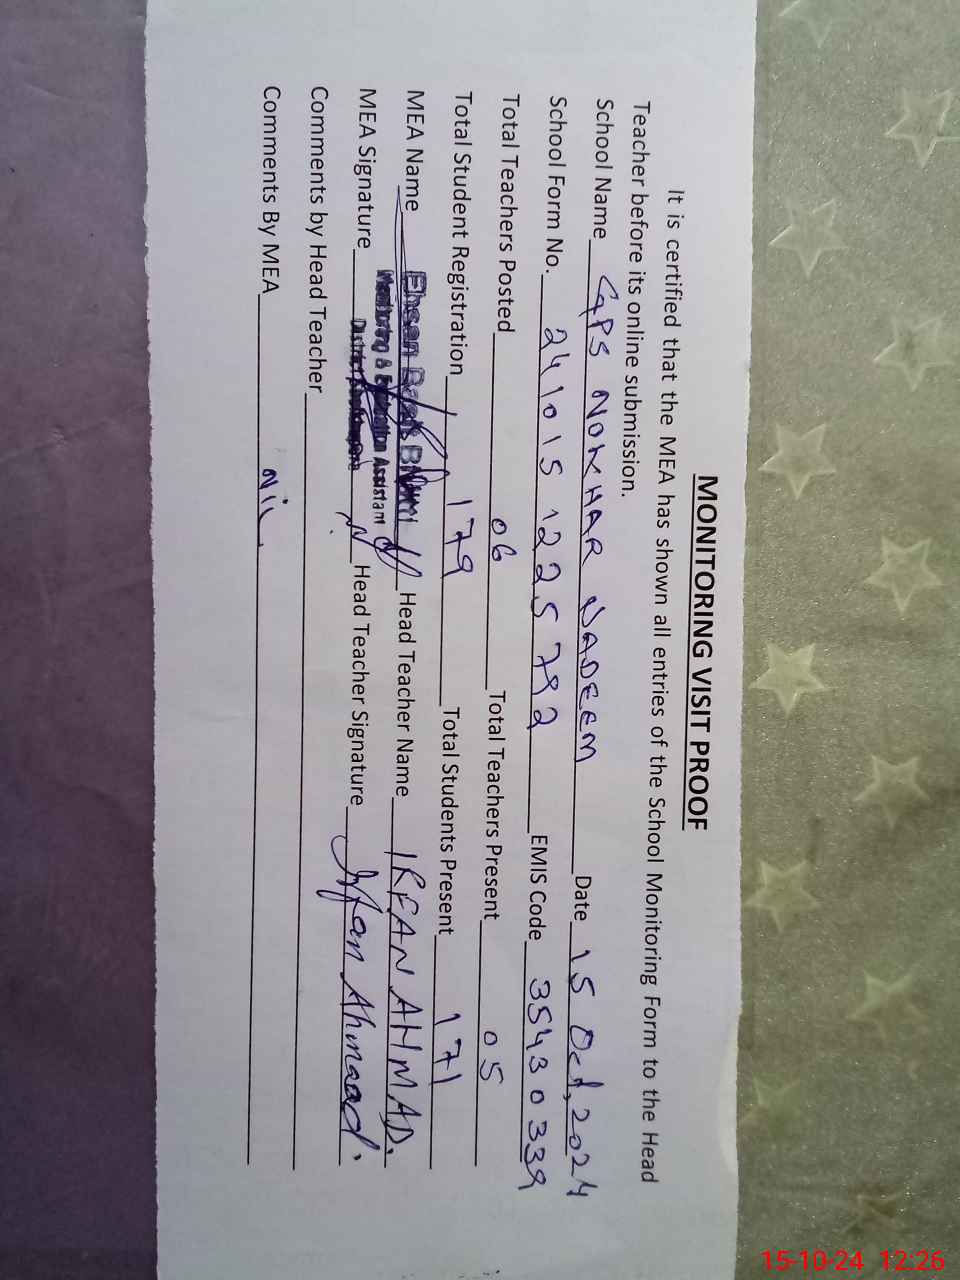 MONITORING VISIT PROOF
It is certified that the MEA has shown all entries of the School Monitoring Form to the Head
Teacher before its online submission.
School Name GPS NOWHAR NADEEM Date 15 Oct, 2024
School Form No. 241015 1225792 EMIS Code 35430339
Total Teachers Posted 06 Total Teachers Present 05
Total Student Registration 179 Total Students Present 171
MEA Name Ehsan Head Teacher Name IRFAN AHMAD.
Monitoring & Evaluation Assistant
MEA Signature District Head Teacher Signature Irfan Ahmaad.
Comments by Head Teacher
Comments By MEA Nil.
15-10-24 12:26